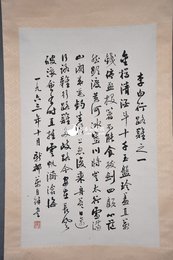 李白行路難之一
金樽清酒斗十千玉盤珍羞直萬
錢停盃投箸不能食拔劍四顧心茫
然欲渡黃河冰塞川將登太行雪滿
山閑來垂釣碧溪上忽復乘舟夢日邊
行路難行路難多歧路今安在長風
破浪會有時直掛雲帆濟滄海
一九六三年十月